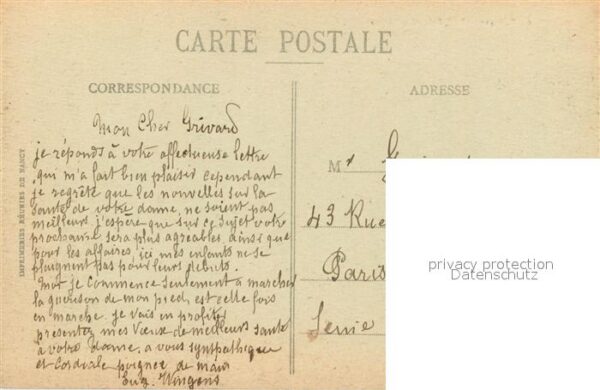 CARTE POSTALE
CORRESPONDANCE
Mon Cher Grivard
je réponds à votre affectueuse lettre
qui m'a fait bien plaisir cependant
je regrête que les nouvelles sur la
santé de votre dame, ne soient pas
meilleurs, j'espère que sur ce sujet votre
prochaine sera plus agreable, ainsi que
pour les affaires, ici mes enfants ne se
plaignent pas pour leurs debuts.
Moi je commence seulement à marcher
la guerison de mon pied, est cette fois
en marche. je vais en profiter
presenter mes Vœux de meilleurs santé
à votre Dame. a vous synpathique
et Cordiale poignee de main
ADRESSE
Mr
43 Rue
Paris
Seine
IMPRIMERIES RÉUNIES DE NANCY
privacy protection
Datenschutz